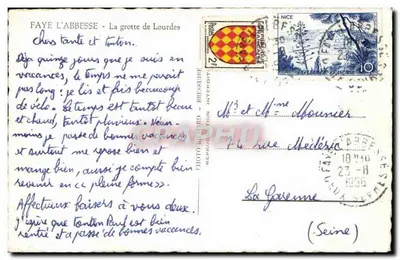 FAYE L'ABBESSE - La grotte de Lourdes
Chers tante et tonton.
Depuis quinze jours que je suis en
vacances, le temps ne me paraît
pas long : je lis et fais beaucoup
de vélo. Le temps est tantôt beau
et chaud, tantôt pluvieux. Néan-
moins je passe de bonnes vacances
et surtout me repose bien et
mange bien, aussi je compte bien
revenir en "pleine forme".
Affectueux baisers à vous deux.
J'espère que tonton Paul est bien
rentré et a passé de bonnes vacances.
NICE
10
2F
Mr et Mme Mounier
74 rue Médéric
La Garenne
(Seine)
18H10
23-8
1956